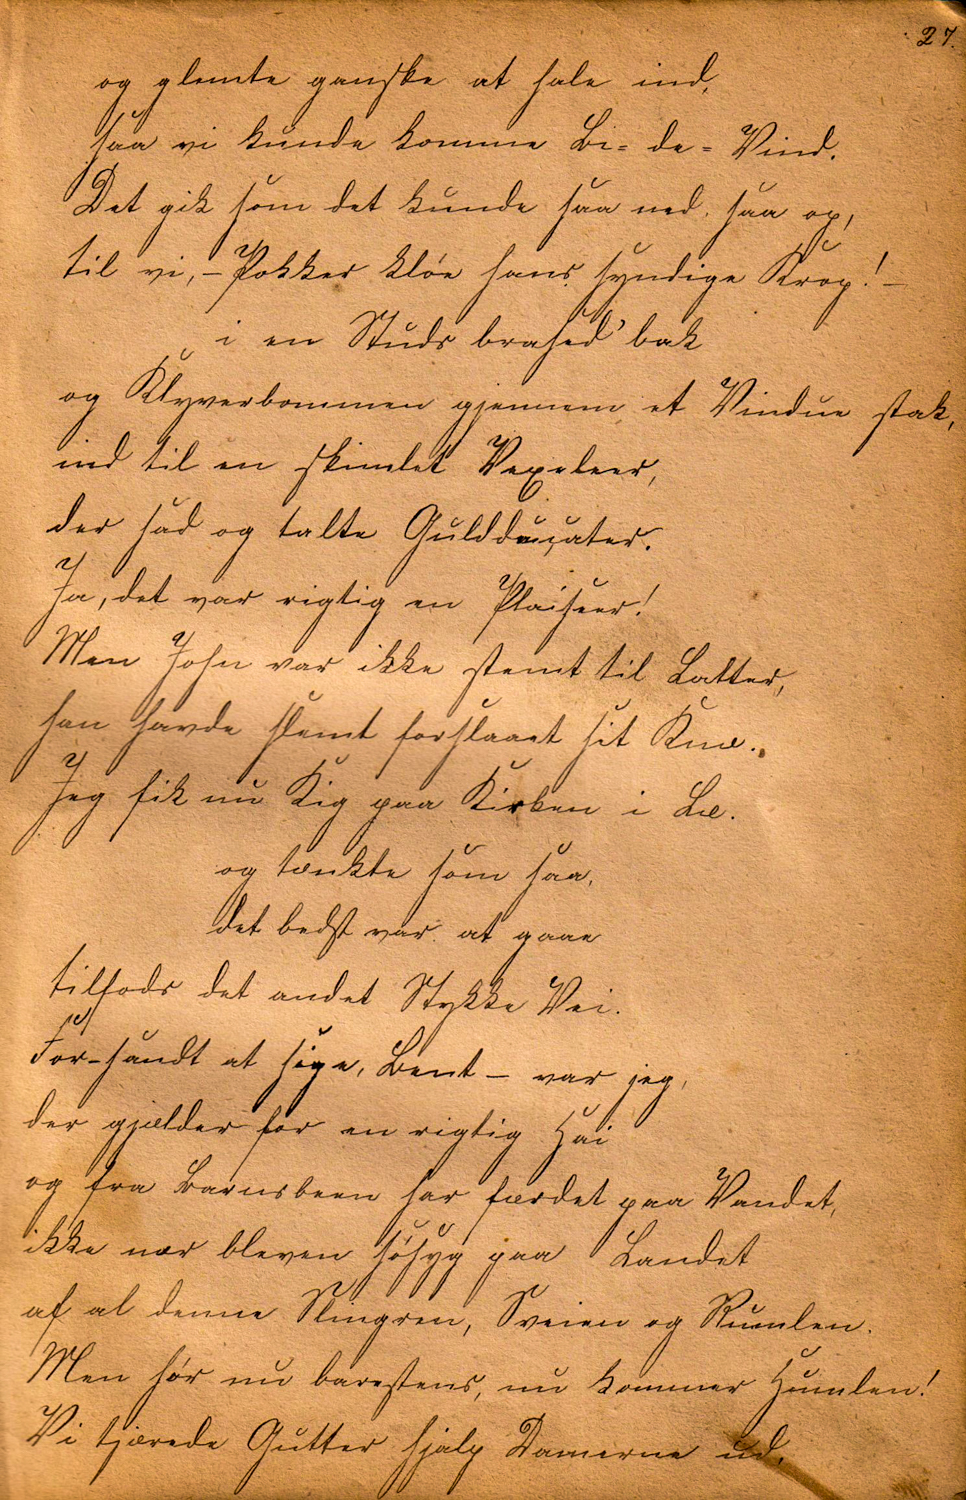 27.
og glemte ganske at hale ind,
saa vi kunde komme Bi-de-Vind.
Det gik som det kunde saa ned, saa op,
til vi, – Pokker kløe hans syndige Krop! –
i en Studs brased' bak
og Klyverbommen gjennem et Vindue stak,
ind til en skimlet Vexeleer,
der sad og talte Guldducater.
Ja, det var rigtig en Plaiseer!
Men John var ikke stemt til Latter,
han havde slemt forslaaet sit Knæ.
Jeg fik nu Kig paa Kirken i Læ.
og tænkte som saa,
det bedst var at gaae
tilfods det andet Stykke Vei.
For–sandt at sige, Bent – var jeg,
der gjælder for en rigtig Hai
og fra Barnsbeen har færdet paa Vandet,
ikke nær bleven søsyg paa Landet
af al denne Slingren, Sveien og Rumlen.
Men hør nu barestens, nu kommer Humlen!
Vi tjærede Gutter hjalp Damerne ud,